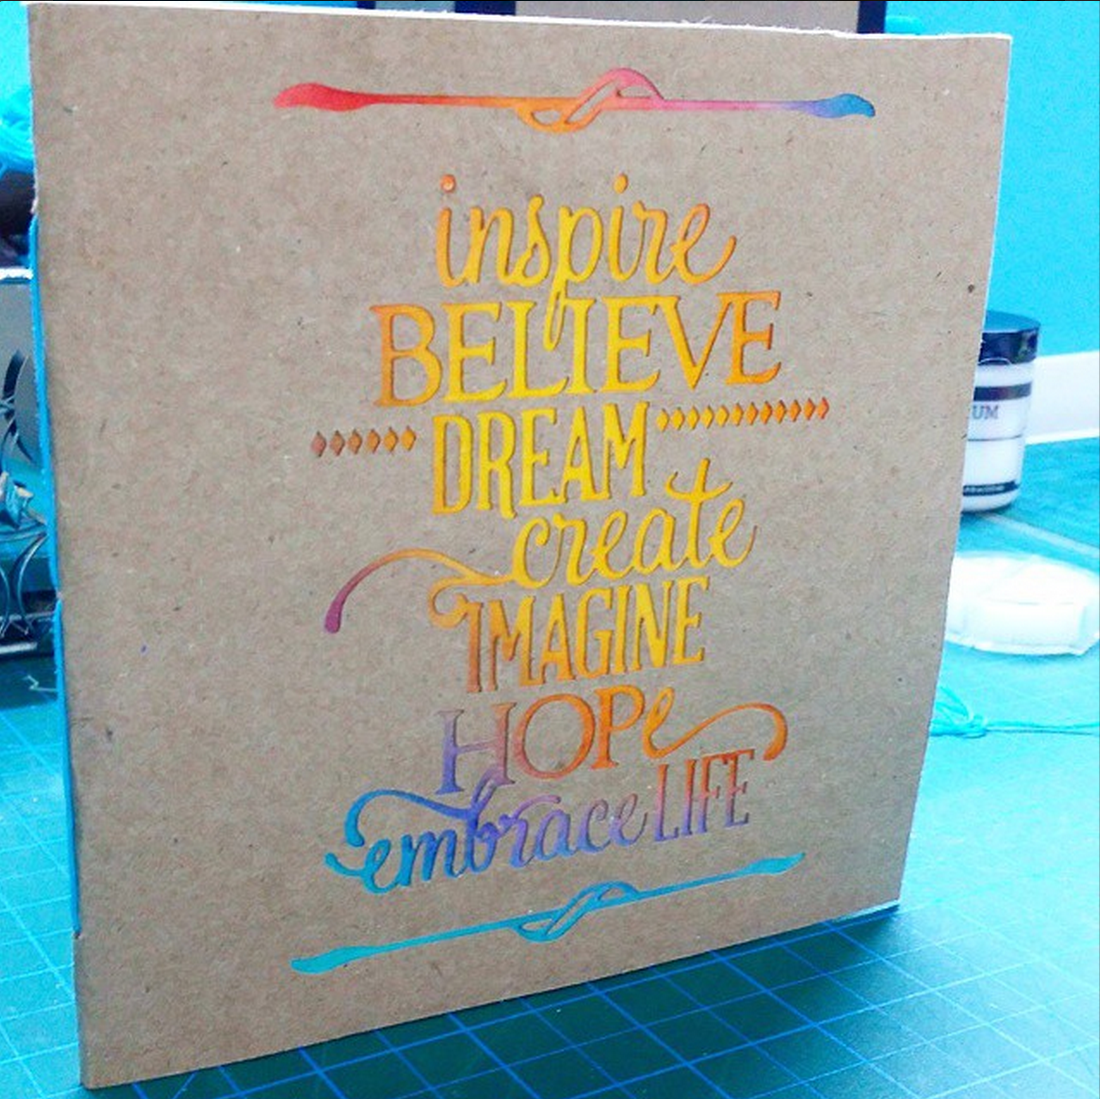 inspire
BELIEVE
DREAM
create
IMAGINE
HOPe
embrace LIFE
UM